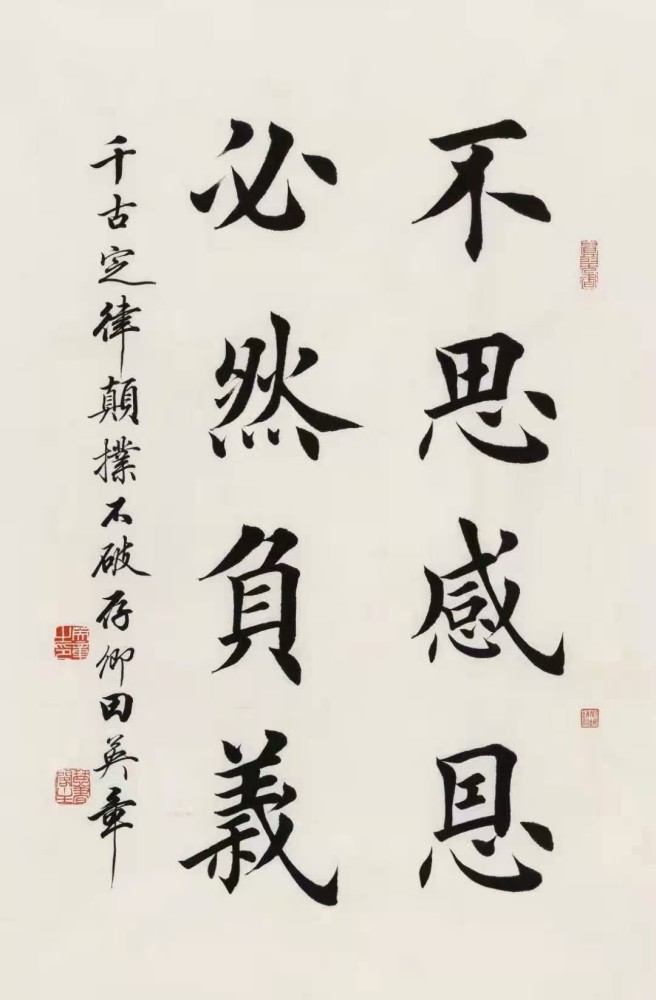 不思感恩
必然負義
千古定律顛撲不破存卿田英章